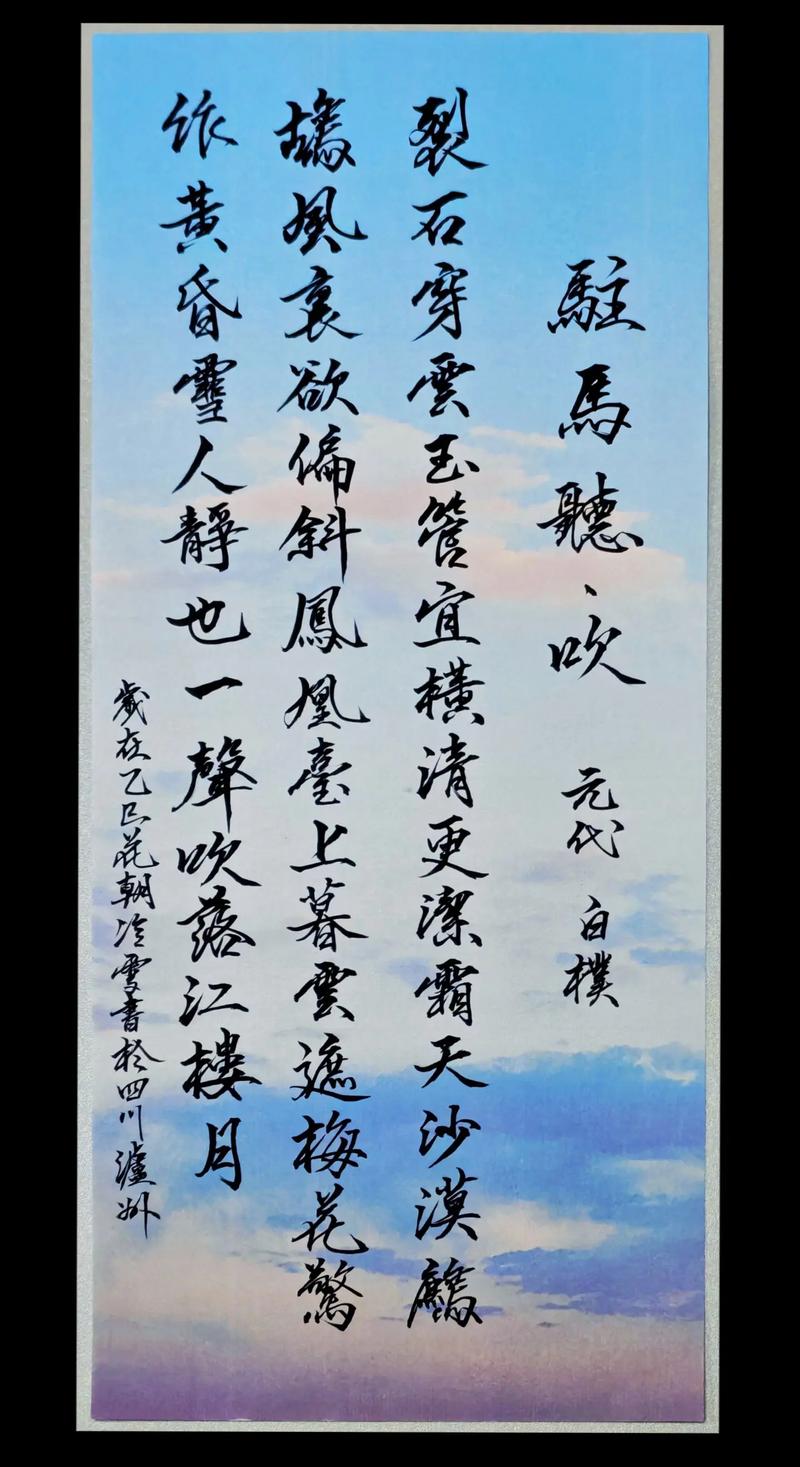 駐馬聽、吹 元代 白樸
裂石穿雲玉管宜橫清更潔霜天沙漠鷓
鴣風裏欲偏斜鳳凰臺上暮雲遮梅花驚
作黃昏雪人靜也一聲吹落江樓月
歲在乙巳花朝冷雪書於四川瀘州